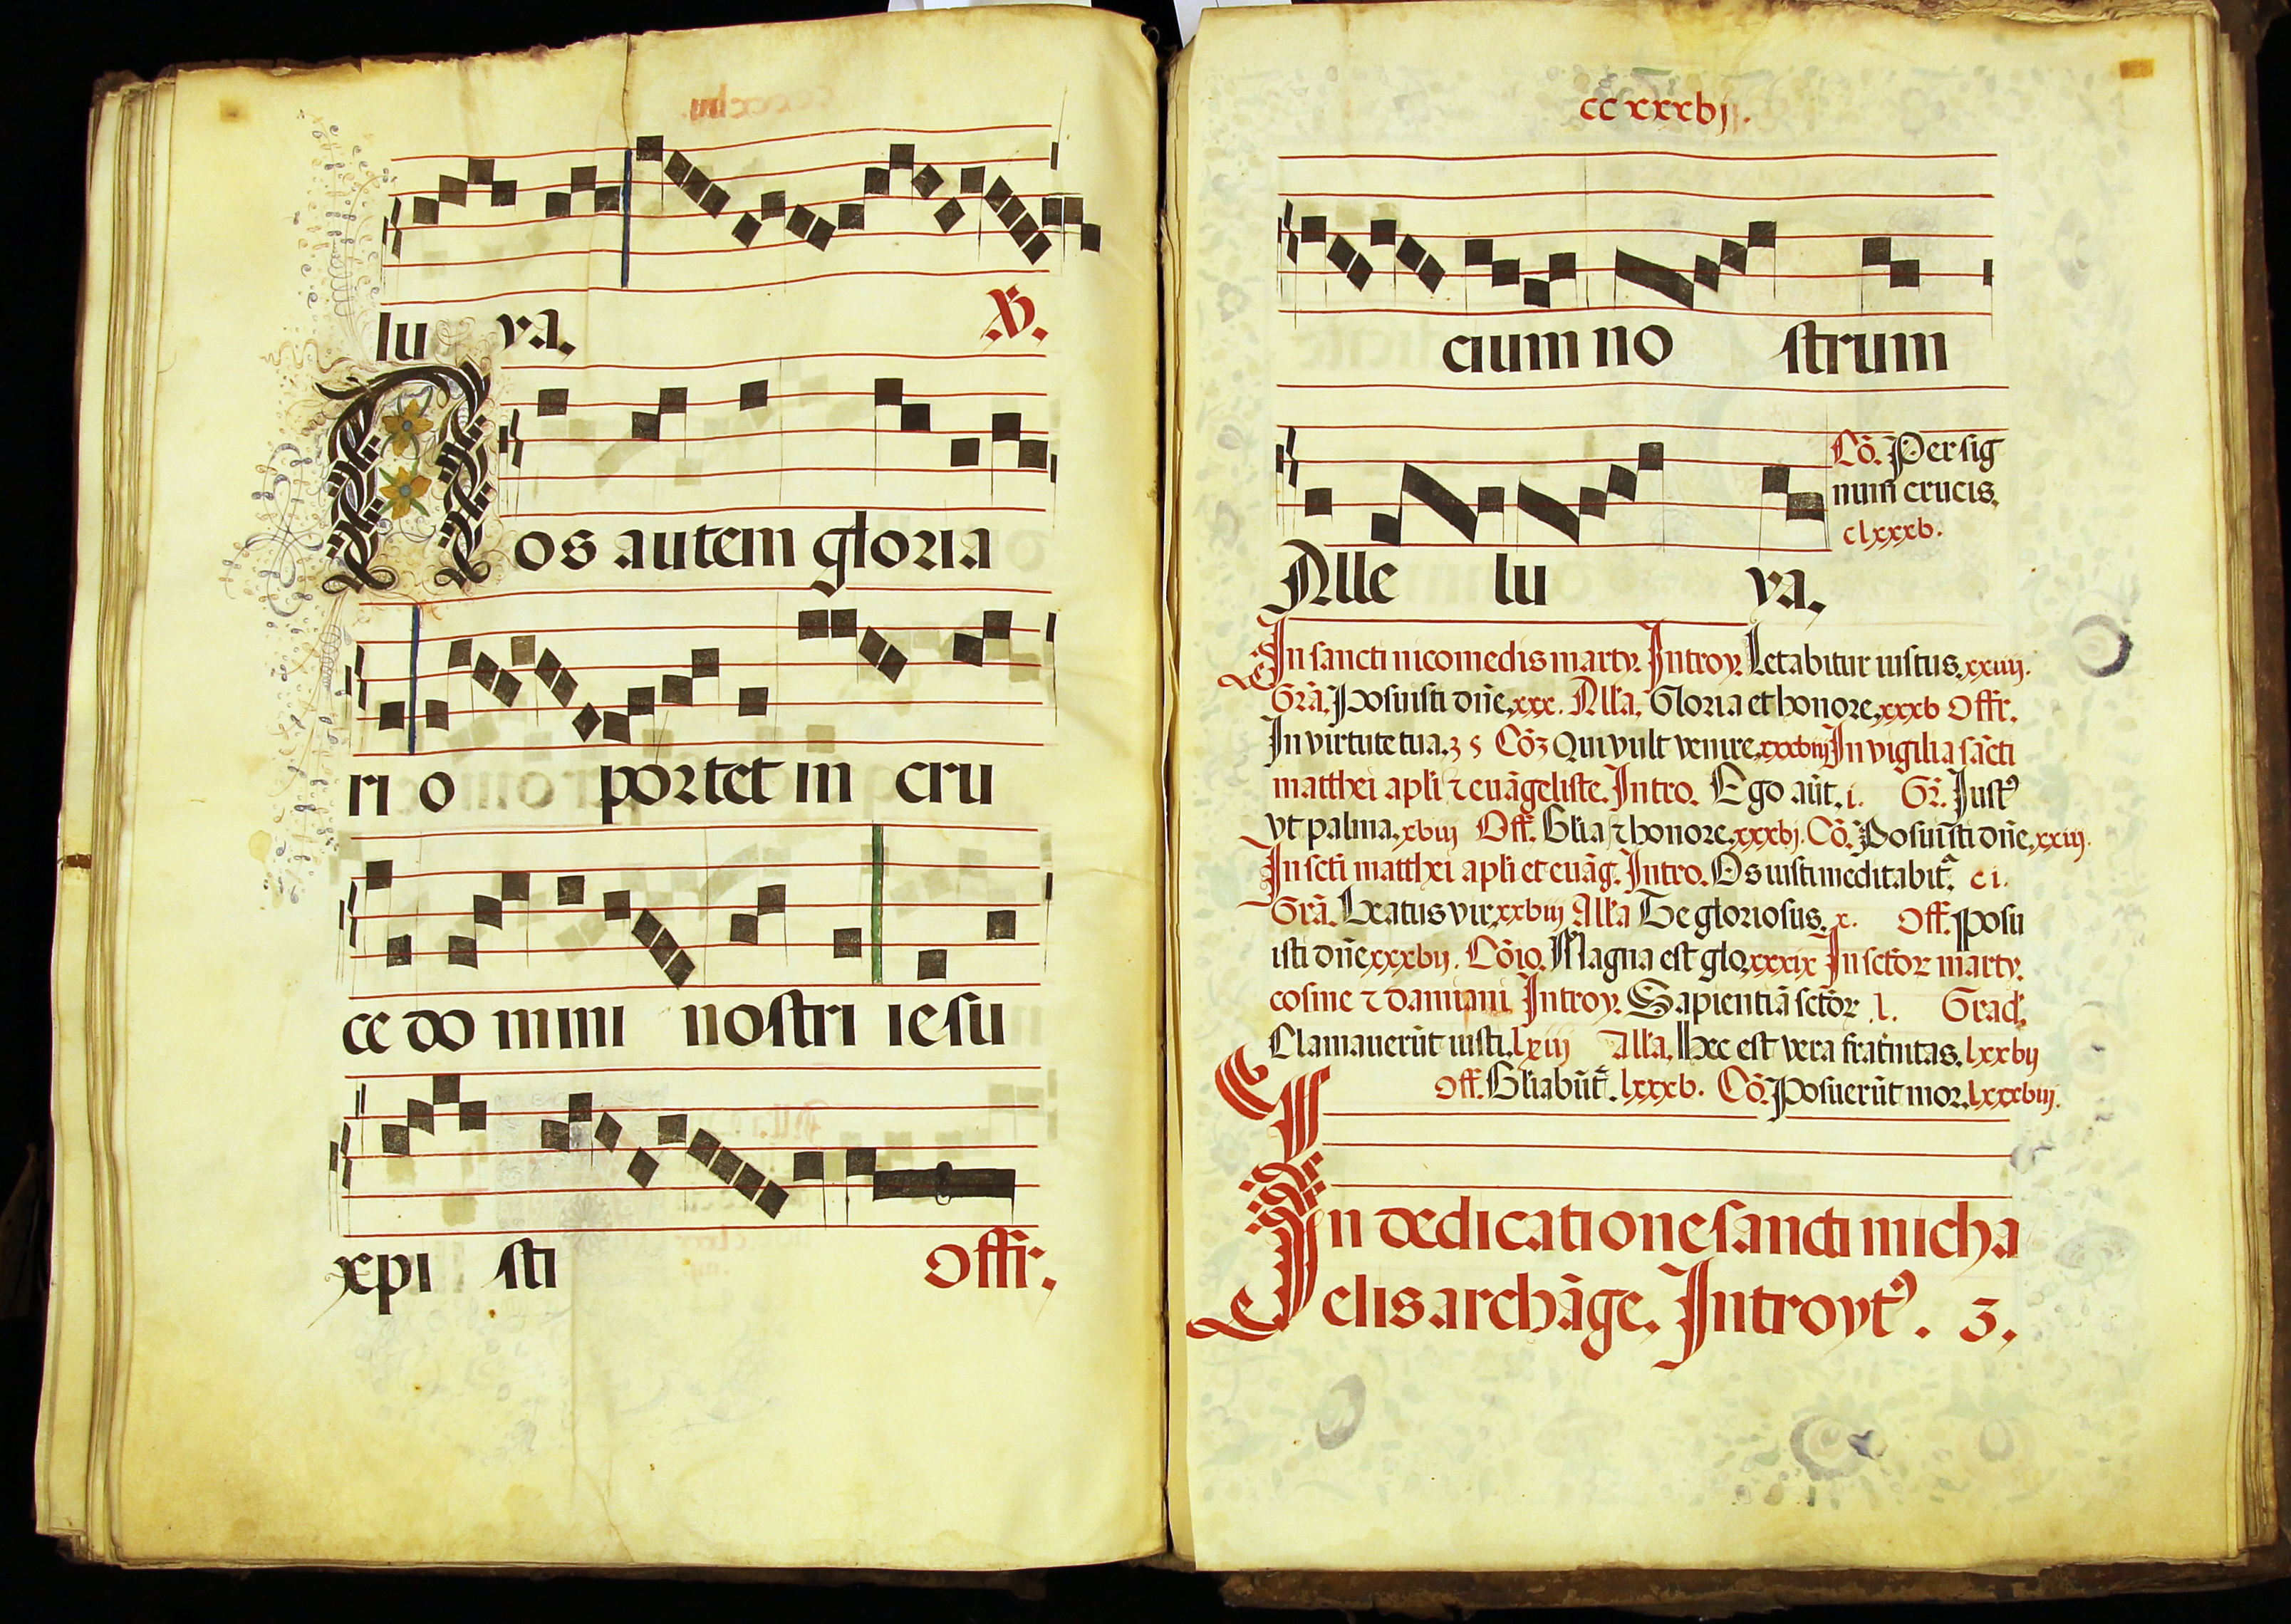 lu ya. ℣.
Nos autem gloria
ri o portet in cru
ce do mini nostri iesu
xpi sti Offr.
cc xxxbij.
cium no strum
Cõ. Per sig
num crucis.
clxxxb.
Alle lu ya.
In sancti nicomedis marty. Introy. Letabitur iustus. xxiiij.
Grã. Posuisti dñe. xxx. All'a. Gloria et honore. xxxb Offr.
In virtute tua. 35 Cõz Qui vult venire. xxxbiij In vigilia sãcti
matthei apli ⁊ euãgeliste. Intro. Ego aũt. i. Gr̃. Just⁹
vt palma. xbiij Off. Glia ⁊ honore. xxxbj. Cõ. Posuisti dñe. xxiij.
In scti matthei apli et euãg. Intro. Os iusti meditabit̃. ci.
Grã. Beatus vir xxbiij All'a Te gloriosus. x. Off. Posu
isti dñe xxxbij. Cõio. Magna est glo. xxxix In sctõr marty.
cosme ⁊ damiani Introy. Sapientiã sctõr .l. Grad.
Clamauerũt iusti. lxiij All'a. Hec est vera frat̃nitas. lxxbij
Off. Gliabũt̃. lxxxb. Cõ. Posuerũt mor. lxxxbiij.
In dedicatione sancti micha
elis archãge. Introyt⁹. 3.